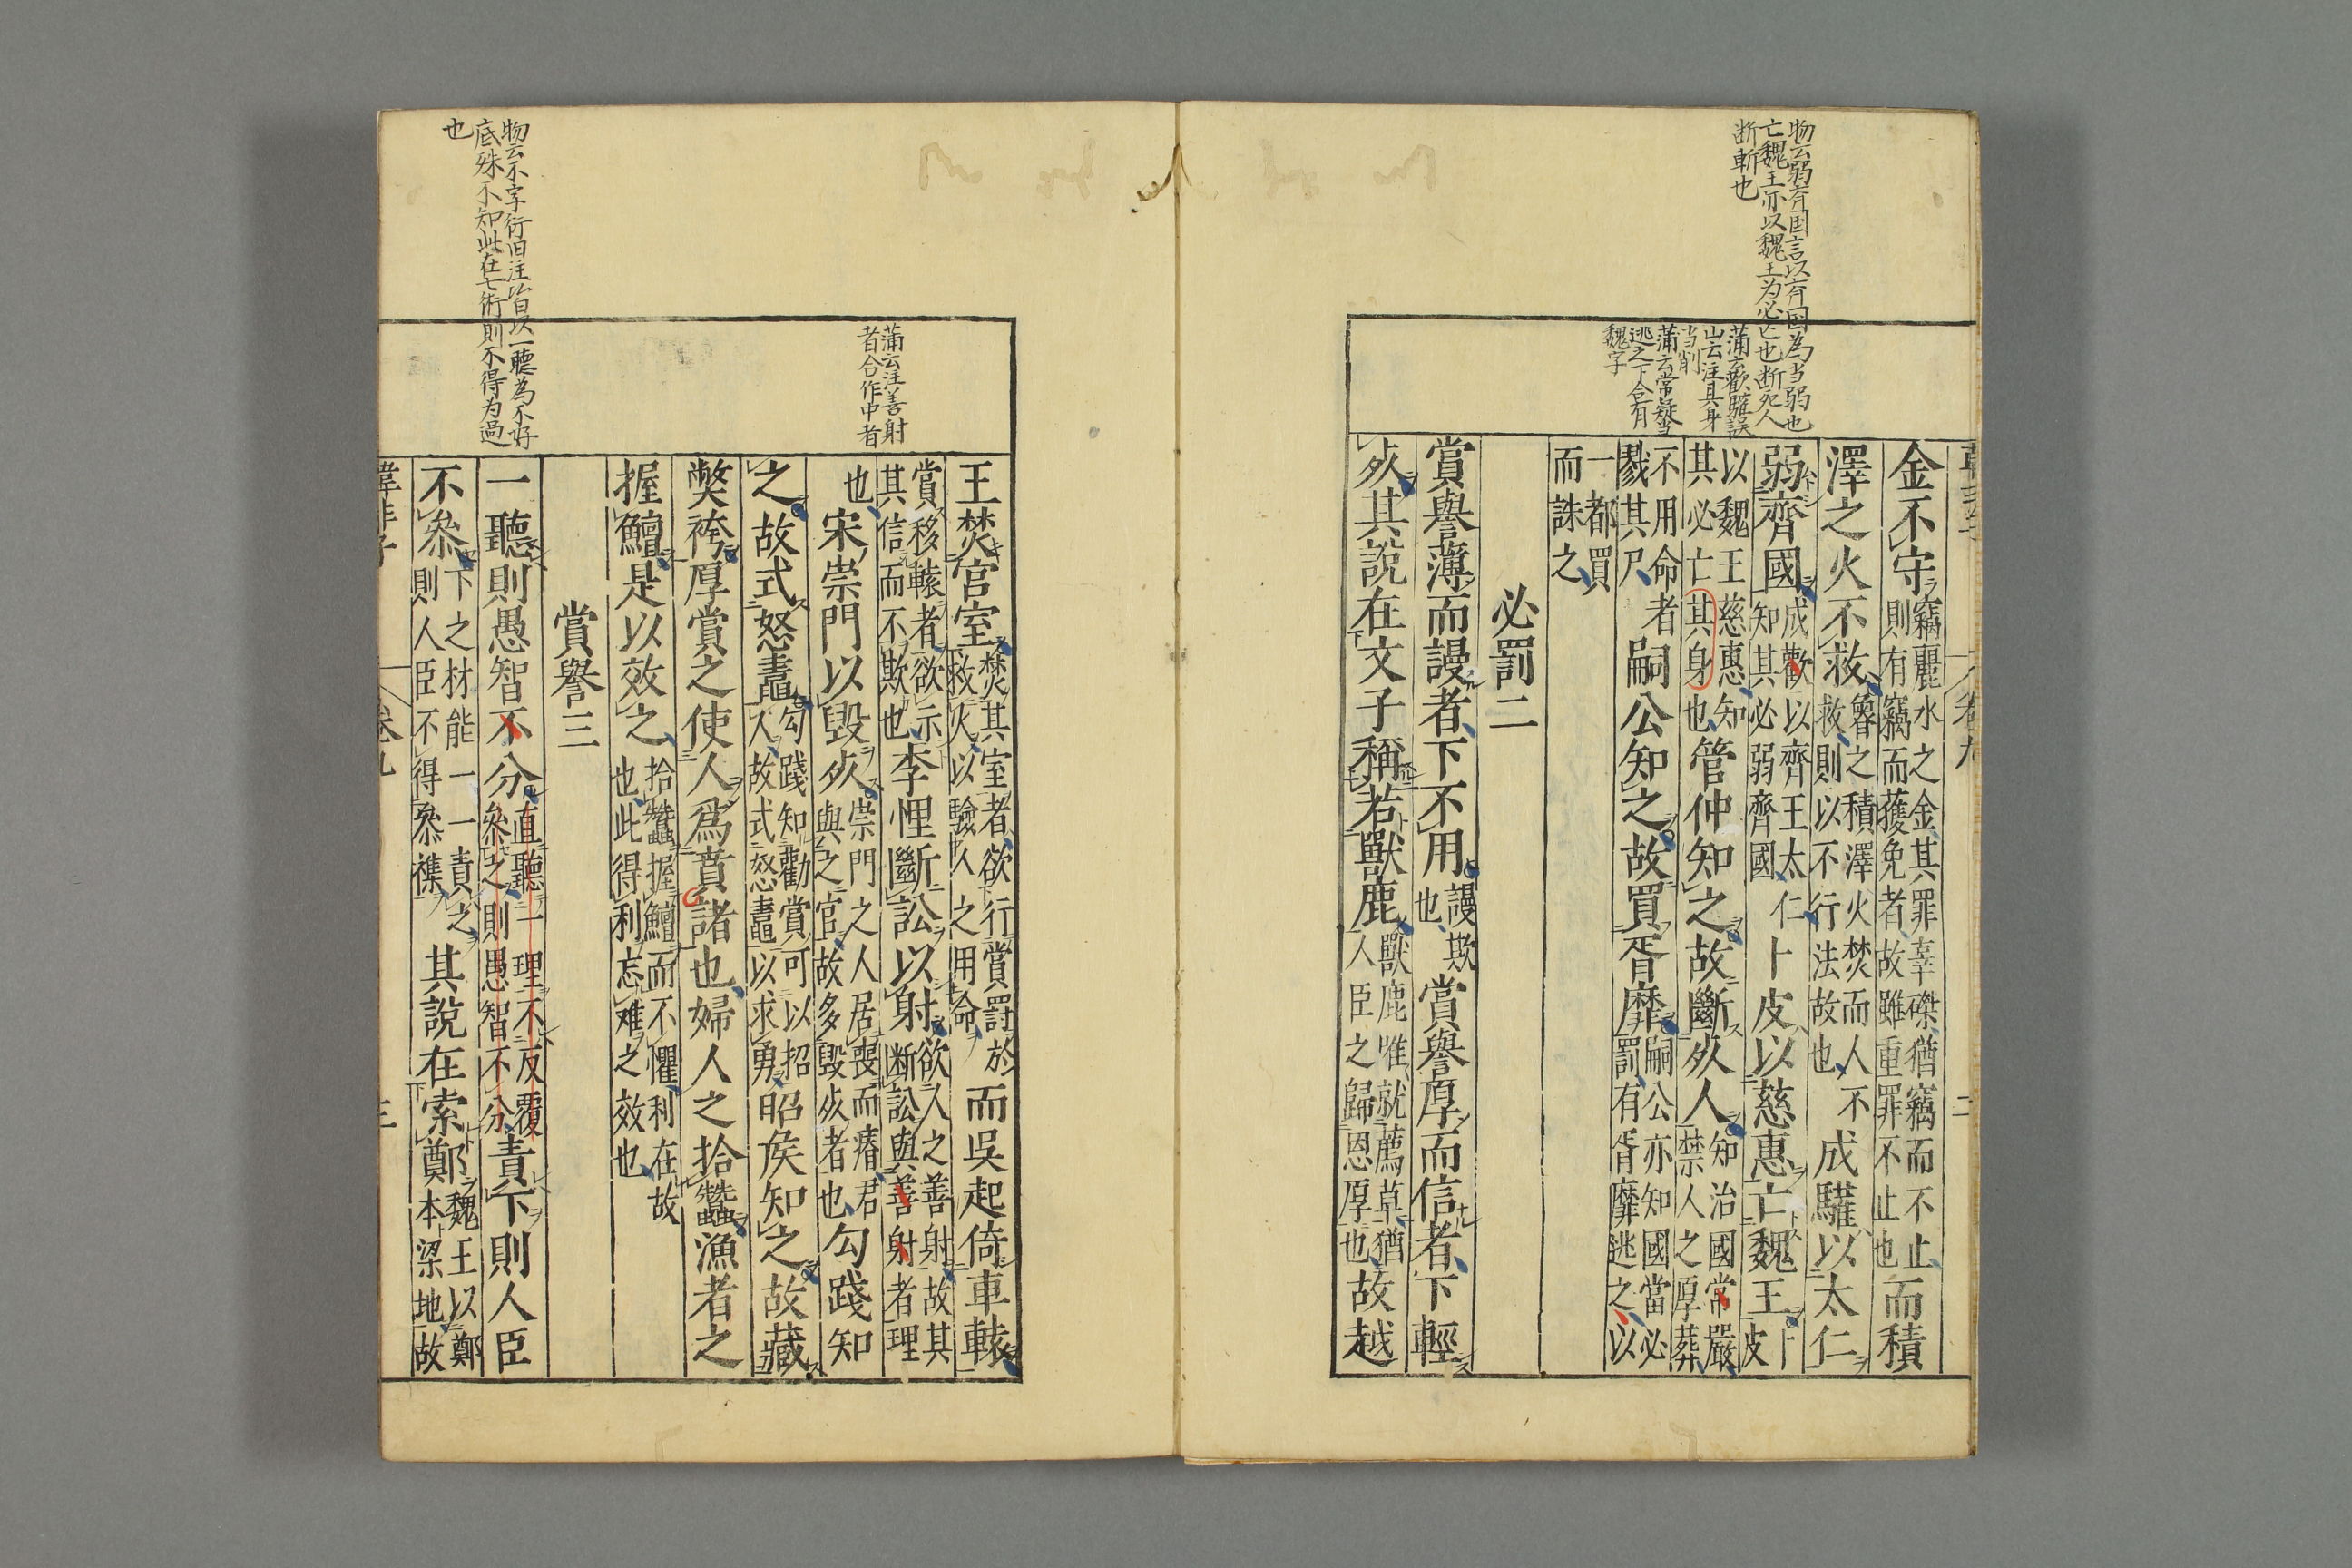 物云弱有因言以有因為当弱也
亡魏王亦以魏王为必亡也断死人
断斬也
蒲云歡驩誤
山云注其身
当削
蒲云常疑當
逃之下合有
魏字
金不守竊麗水之金其罪辜磔猶竊而不止
則有竊而獲免者故雖重罪不止也而積
澤之火不救魯之積澤火焚而人不
救則以不行法故也成驩以太仁
弱齊國成歡以齊王太仁
知其必弱齊國卜皮以慈惠亡魏王卜皮
以魏王慈惠知
其必亡其身也管仲知之故斷死人知治國常嚴
禁人之厚葬
不用命者
戮其尸嗣公知之故買胥靡嗣公亦知國當必
罰有胥靡逃之以
一都買
而誅之
必罰二
賞譽薄而謾者下不用謾欺
也賞譽厚而信者下輕
死其說在文子稱若獸鹿獸鹿唯就薦草猶
人臣之歸恩厚也故越
蒲云注善射
者合作中者
物云不字衍旧注皆以一聽為不好
底殊不知此在七術則不得为過
也
王焚宮室焚其室者欲行賞罰於
救火以驗人之用命而吳起倚車轅
賞移轅者欲示
其信而不欺也李悝斷訟以射欲人之善射故其
断訟與善射者理
也宋崇門以毀死崇門之人居喪而瘠君
與之官故多毀死者也勾踐知
之故式怒鼃勾踐知勸賞可以招
人故式怒鼃以求勇昭侯知之故藏
弊袴厚賞之使人爲賁諸也婦人之拾蠶漁者之
握鱣是以效之拾蠶握鱣而不懼利在故
也此得利忘难之效也
賞譽三
一聽則愚智不分直聽一理不反覆
參之則愚智不分責下則人臣
不參下之材能一一責之
則人臣不得參襍其說在索鄭魏王以鄭
本梁地故
韓非子
卷九
三